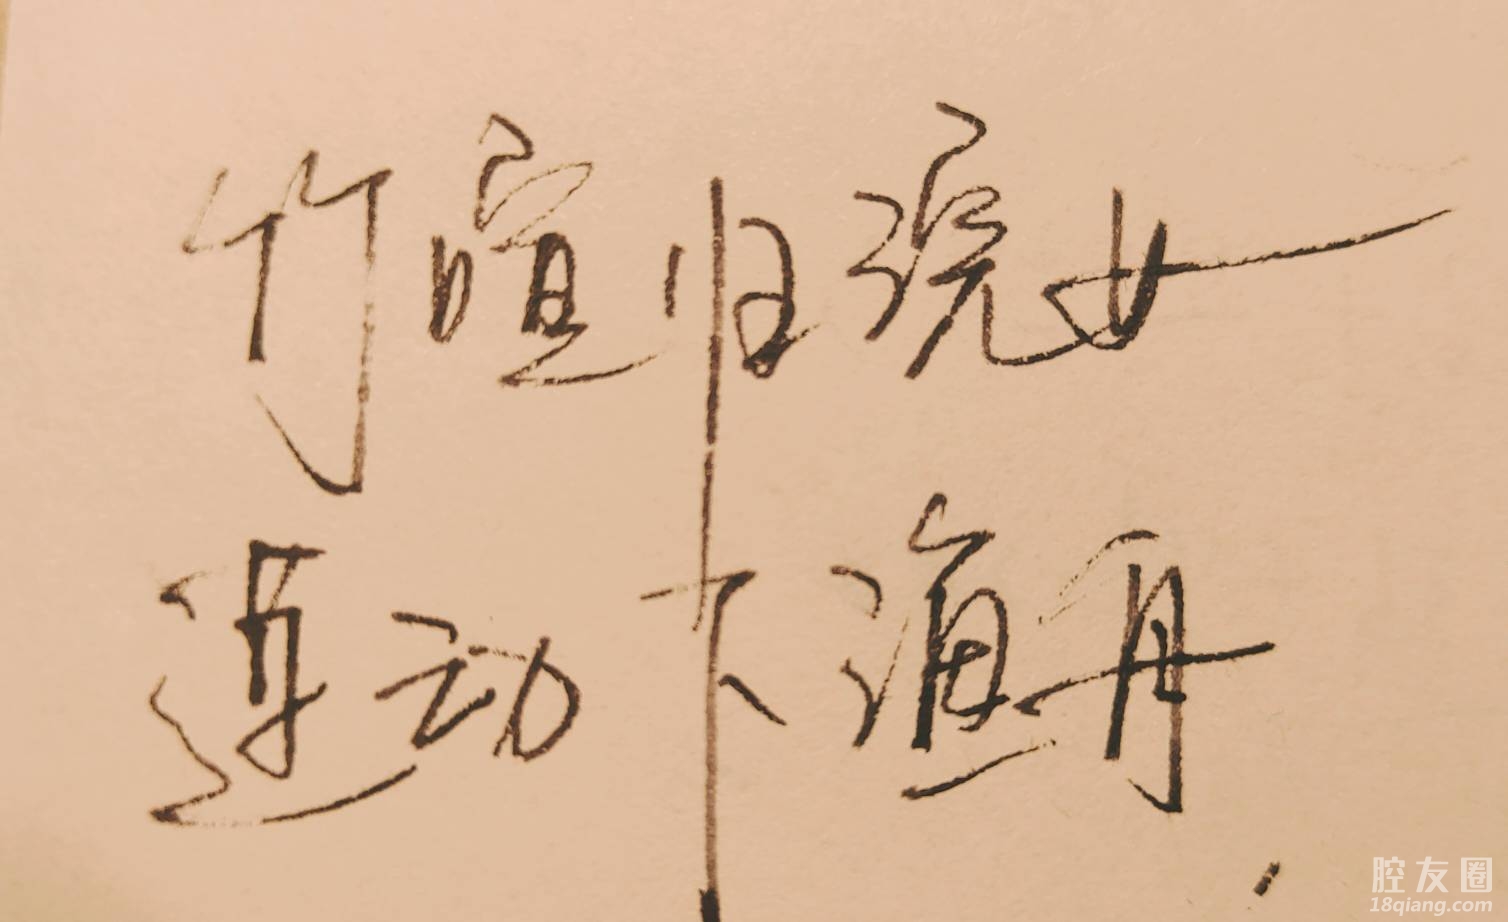 竹喧归浣女
莲动下渔舟
腔友圈
18qiang.com